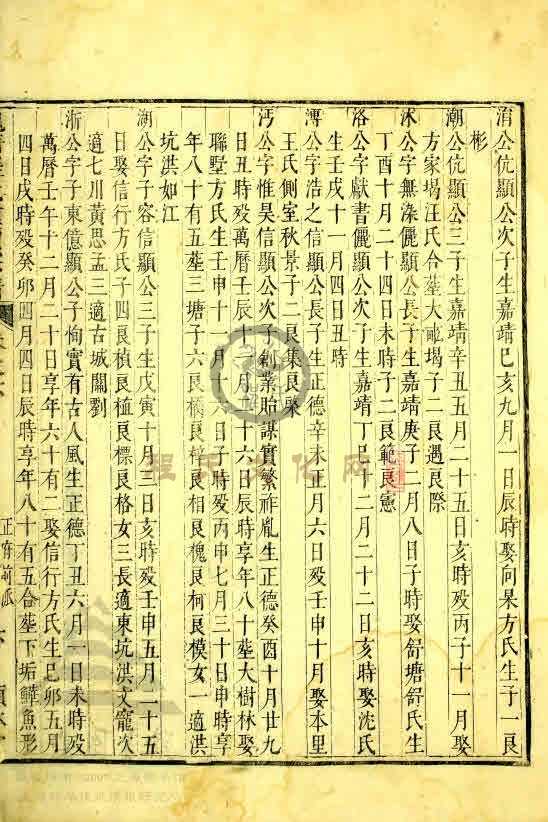 㳙公伉顯公次子生嘉靖己亥九月一日辰時娶向杲方氏生子一良
彬
潮公伉顯公三子生嘉靖辛丑五月二十五日亥時殁丙子十一月娶
方家塢汪氏合塟大畈塢子二良遇良際
沭公字無澡儷顯公長子生嘉靖庚子二月八日子時娶舒塘舒氏生
丁酉十月二十四日未時子二良範良憲
洛公字獻書儷顯公次子生嘉靖丁巳十二月二十二日亥時娶沈氏
生壬戌十一月四日丑時
溥公字浩之信顯公長子生正德辛未正月六日殁壬申十月娶本里
王氏側室秋景子二良集良聚
沔公字惟昊信顯公次子創業貽謀實繁祚胤生正德癸酉十月廿九
日丑時殁萬曆壬辰十二月十六日辰時享年八十塟大樹林娶
聯墅方氏生壬申十一月一日子時殁丙申七月三十日申時享
年八十有五塟三塘子六良楨良棓良相良槐良柯良模女一適洪
坑洪如江
湖公字子容信顯公三子生戊寅十月三日亥時殁壬申五月二十五
日娶信行方氏子四良楨良植良標良格女三長適東坑洪文寵次
適七川黃思孟三適古城關劉
浙公字子東億顯公子恂實有古人風生正德丁丑六月一日未時殁
萬曆壬午十二月二十日享年六十有二娶信行方氏生己卯五月
四日戌時殁癸卯四月四日辰時享年八十有五合塟下垢鱔魚形
正府前派
程氏文化网